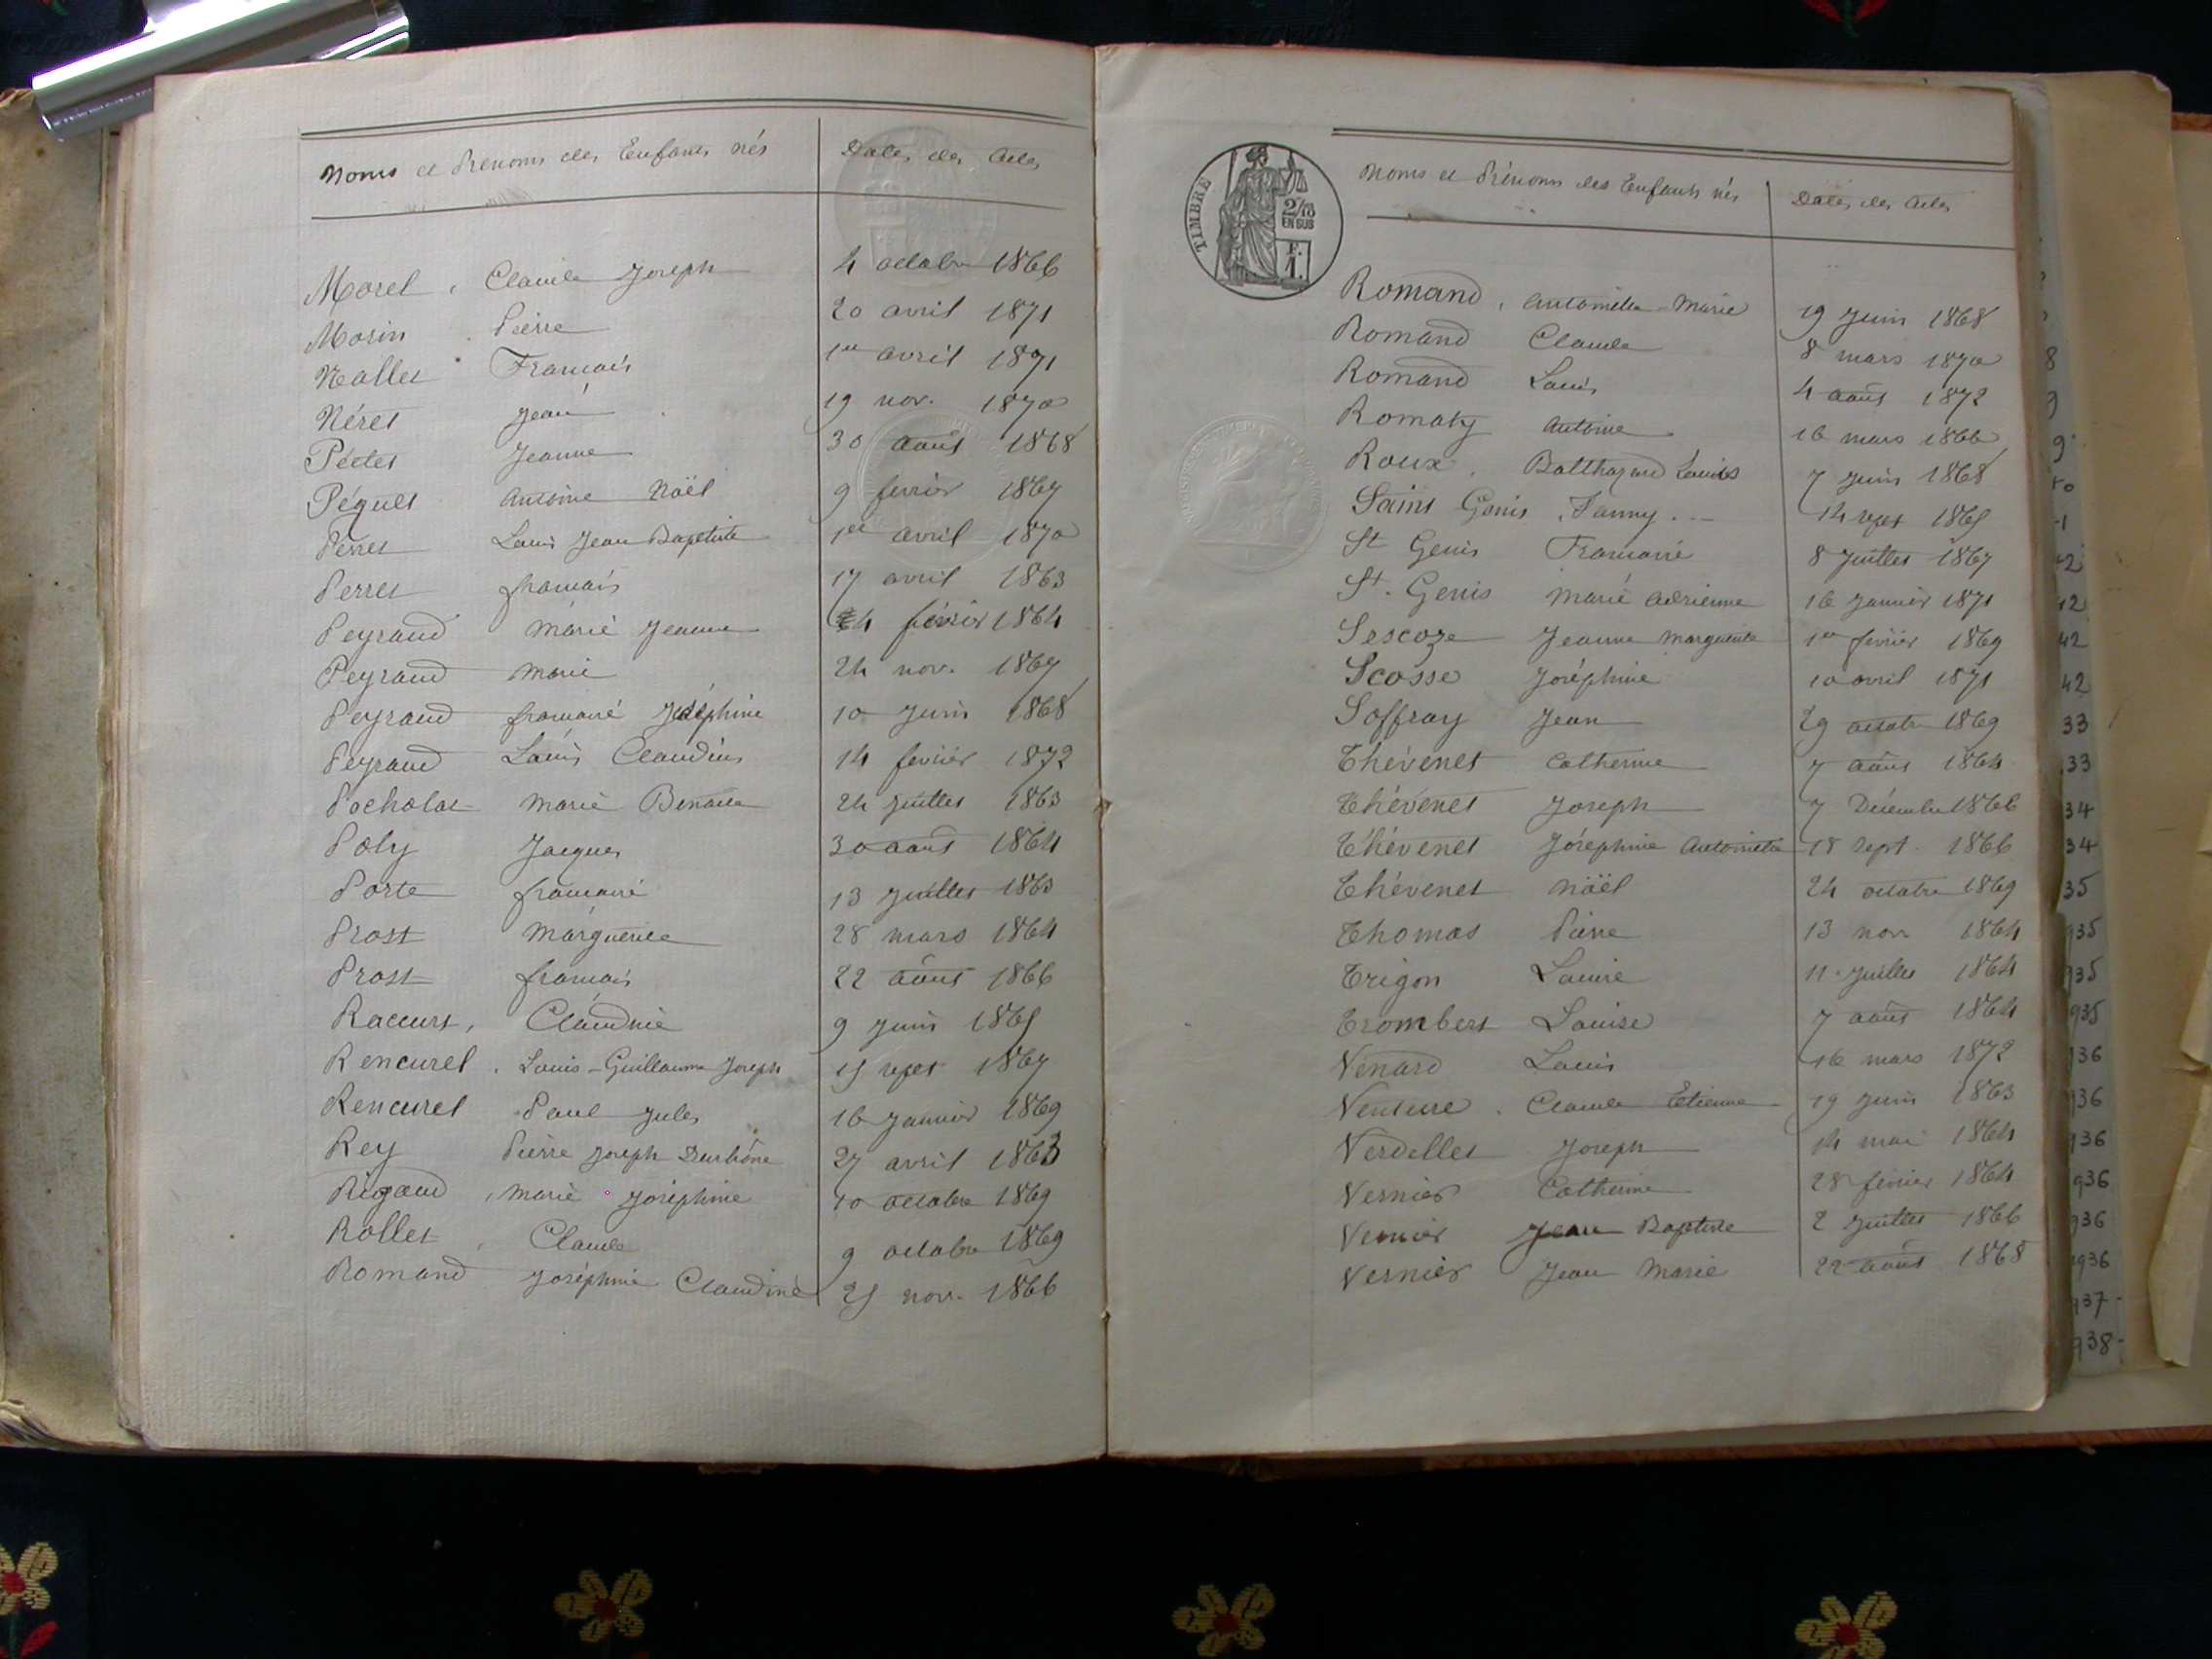 Noms et Prénoms des Enfants nés Dates des Actes
Morel, Claude Joseph 4 octobre 1866
Morin Pierre 20 avril 1871
Nallet François 1er avril 1871
Néret Jean 19 nov. 1870
Péctet Jeanne 30 août 1868
Péguet Antoine Noël 9 février 1867
Perret Louis Jean Baptiste 1er avril 1870
Perret françois 17 avril 1863
Peyraud Marie Jeanne 4 février 1864
Peyraud Marie 24 nov. 1867
Peyraud françoise Joséphine 10 Juin 1868
Peyraud Louis Claudius 14 février 1872
Pocholat Marie Benoite 24 Juillet 1863
Poly Jacques 30 août 1864
Porte françoise 13 Juillet 1863
Prost Marguerite 28 mars 1864
Prost françois 22 août 1866
Raccurt, Claudine 9 Juin 1865
Rencurel, Louis-Guillaume Joseph 15 sept 1867
Rencurel Paul Jules 16 Janvier 1869
Rey Pierre Joseph 27 avril 1863
Rigaud, Marie Joséphine 10 octobre 1869
Rollet, Claude 9 octobre 1869
Romand Joséphine Claudine 25 nov. 1866
TIMBRE
2/10
EN SUS
F.
1.
Noms et Prénoms des Enfants nés Dates des Actes
Romand, Antoinette-Marie 19 Juin 1868
Romand Claude 8 mars 1870
Romand Louis 4 août 1872
Romaty Antoine 16 mars 1866
Roux. Balthazard Louis 7 Juin 1868
Saint Genis, Fanny. 14 sept 1865
St Genis Françoise 8 Juillet 1867
St. Genis Marie Adrienne 16 Janvier 1871
Sescoze Jeanne Marguerite 1er février 1869
Scosse Joséphine 10 avril 1871
Soffray Jean 29 octobre 1869
Thévenet Catherine 7 août 1864
Thévenet Joseph 7 Décembre 1866
Thévenet Joséphine Antoinette 18 sept. 1866
Thévenet Noël 24 octobre 1869
Thomas Pierre 13 nov. 1864
Trigon Louise 11 Juillet 1864
Trombert Louise 7 août 1864
Vénard Louis 16 mars 1872
Venture. Claude Etienne 19 Juin 1863
Verdellet Joseph 14 mai 1864
Vernier Catherine 28 février 1864
Vernier Jean Baptiste 2 Juillet 1866
Vernier Jean Marie 22 août 1868
8
9
9
42
42
42
42
33
33
34
34
35
935
935
935
936
936
936
936
936
936
937-
938-